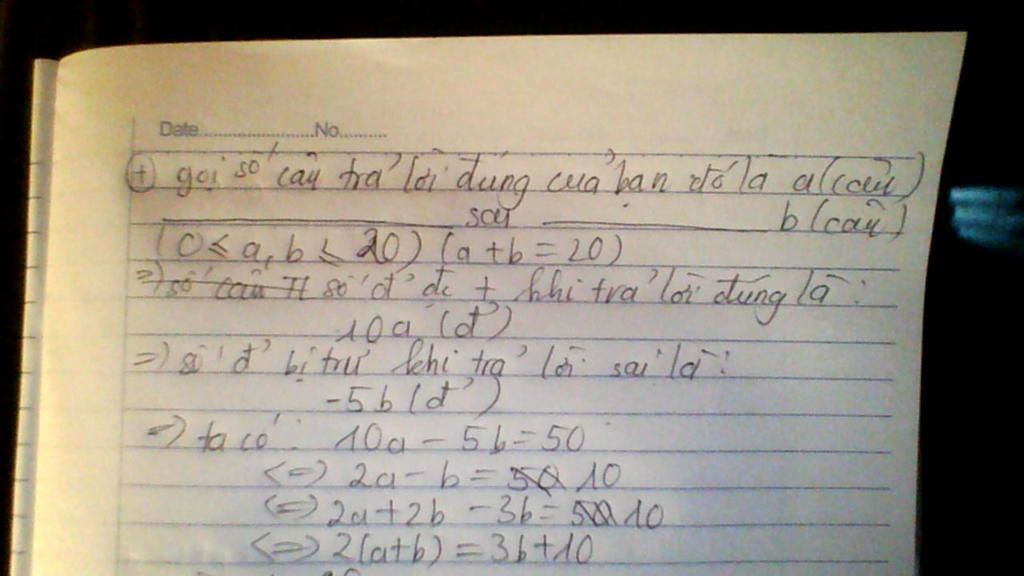 Date.....................No..........
(+) gọi số câu trả lời đúng của bạn đó là a (câu)
sai b (câu)
(0 ≤ a, b ≤ 20) (a + b = 20)
=> số câu Tl số đ' đc + khi trả lời đúng là :
10a (đ')
=> số đ' bị trừ khi trả lời sai là :
-5b (đ')
=> ta có : 10a - 5b = 50
<=> 2a - b = 50 10
<=> 2a + 2b - 3b = 50 10
<=> 2(a+b) = 3b + 10